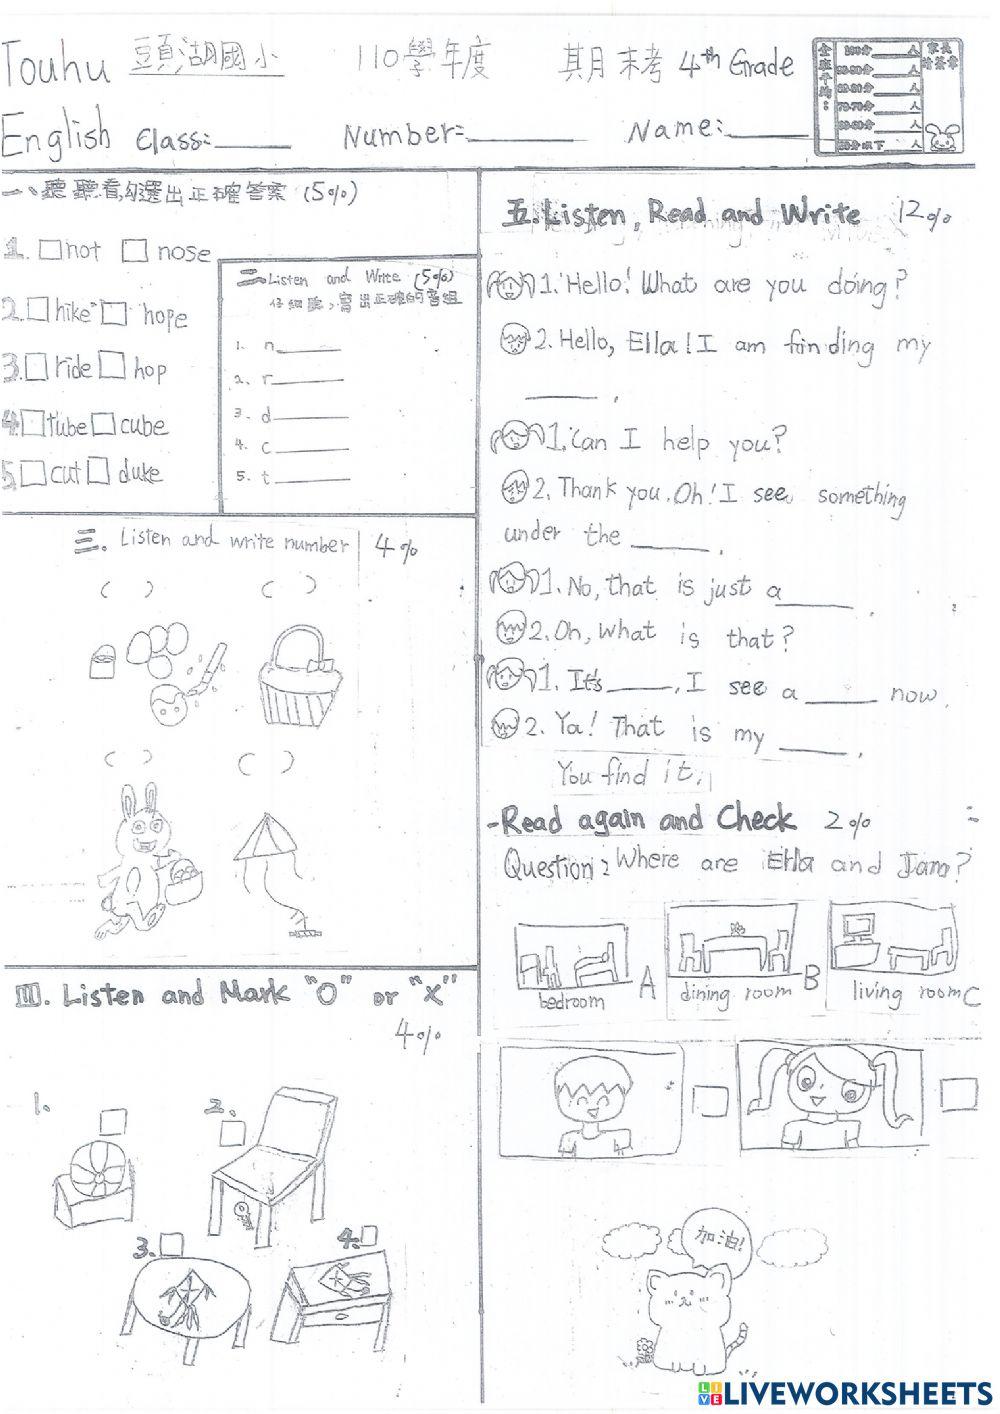 Touhu 頭湖國小 110學年度 期末考 4th Grade
English Class: Number: Name:
全班平均:
100分 人
人
人
70-70分 人
人
人
家長
簽章
一、聽聽看,勾選出正確答案 (5%)
1. □not □ nose
2. □hike □ hope
3. □ride □ hop
4. □tube □ cube
5. □cut □ duke
二. Listen and Write (5%)
仔細聽,寫出正確的音組
1. n
2. r
3. d
4. c
5. t
三. Listen and write number 4%
( ) ( )
( ) ( )
四. Listen and Mark "O" or "X"
4%
1.
2.
3.
4.
五.Listen, Read and Write 12%
1. Hello! What are you doing?
2. Hello, Ella! I am finding my
.
1. Can I help you?
2. Thank you. Oh! I see something
under the .
1. No, that is just a .
2. Oh, what is that?
1. It's . I see a now.
2. Ya! That is my .
You find it.
-Read again and Check 2%
Question: Where are Ella and
bedroom A
dining room B
living room C
加油!
LIVEWORKSHEETS